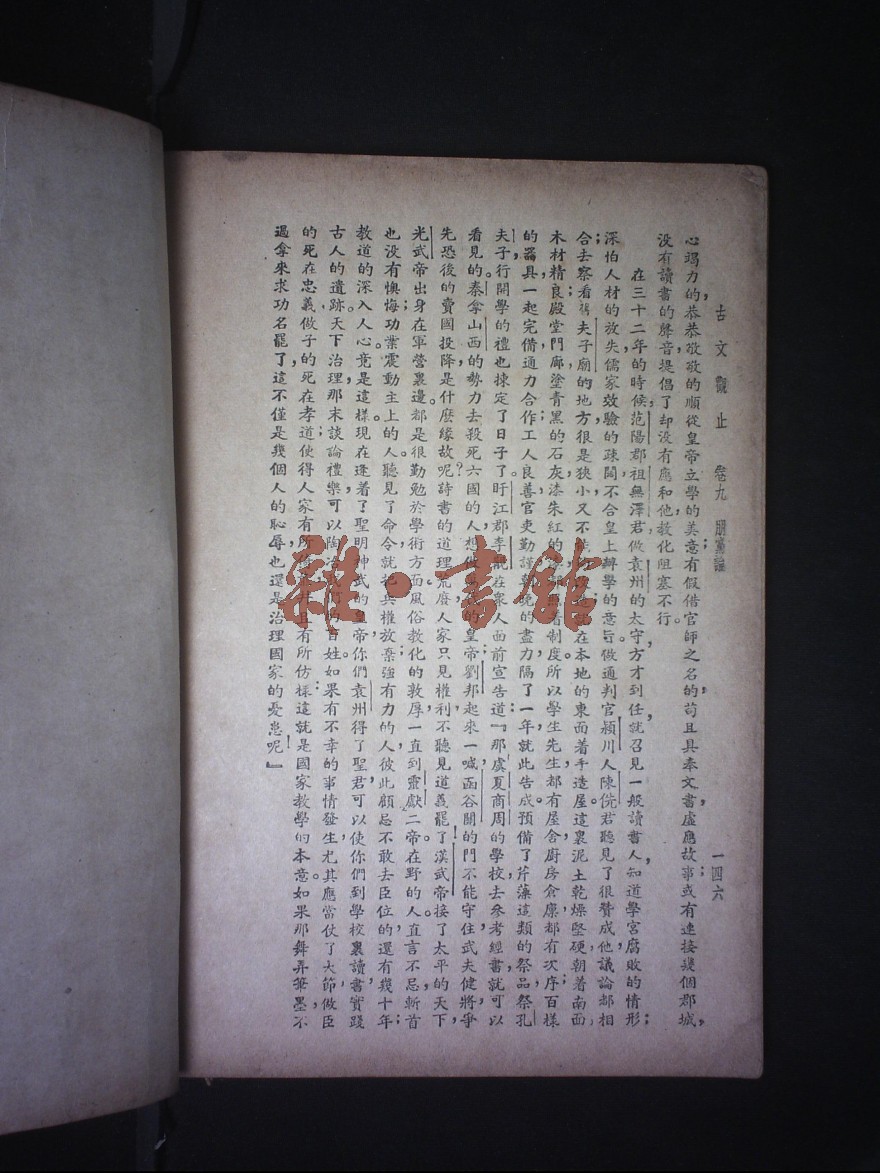 古文觀止　卷九　朋黨論　一四六
心竭力的，恭恭敬敬的順從皇帝立學的美意；有假借官師之名的，苟且具奉文書，虛應故事；或有連接幾個郡城，
沒有讀書的聲音，提倡了却沒有應和他，教化阻塞不行。
在三十二年的時候，范陽郡祖無澤君，做袁州的太守，方才到任，就召見一般讀書人，知道學宮腐敗的情形；
深怕人材的放失，儒家效驗的疎闊，不合皇上辦學的意旨。做通判官潁川人陳侁君聽見了，很贊成他，議論都相
合；去察看舊夫子廟的地方，很是狹小，又不在本地的東面着手造屋。這裏泥土乾燥堅硬，朝着南面，
木材精良；殿堂門廊，塗青黑的石灰，漆朱紅的制度。所以學生先生都有屋舍，廚房倉廩，都有次序；百樣
的器具，一起完備，通力合作；工人良善，官吏勤謹，的盡力，隔了一年，就此告成。預備了芹藻這類的祭品，祭孔
夫子，行開學的禮，也揀定了日子了。盱江郡李覯在衆人面前宣告道：『那虞夏商周的學校，去參考經書，就可以
看見的。秦拿山西的勢力，去殺死六國的人，想做的皇帝，劉邦起來一喊，函谷關的門不能守住，武夫健將，爭
先恐後的賣國投降，是什麽緣故呢？詩書的道理荒廢，人家只見權利，不聽見道義罷了！漢武帝接了太平的天下，
光武帝出身在軍營裏邊，都是很勤勉於學術方面。風俗教化的敦厚，一直到靈獻二帝。在野的人，直言不忌，斬首
也沒有懊悔；功業震動主上的人，聽見了命令，就把兵權放棄；強有力的人，彼此顧忌，不敢去臣位的，還有幾十年；
教道的深入人心，竟是這樣。現在逢着了聖明神武的皇帝，你們袁州得了聖君，可以使你們到學校裏讀書，實踐
古人的遺跡。天下治理，那末談論禮樂，可以陶冶百姓；如果有不幸的事情發生，尤其應當仗了大節，做臣
的死在忠義，做子的死在孝道，使得人家有所，並且有所仿樣；這就是國家教學的本意。如果那舞弄筆墨，不
過拿來求功名罷了，這不僅是幾個人的恥辱，也還是治理國家的憂患呢！』
雜·書館